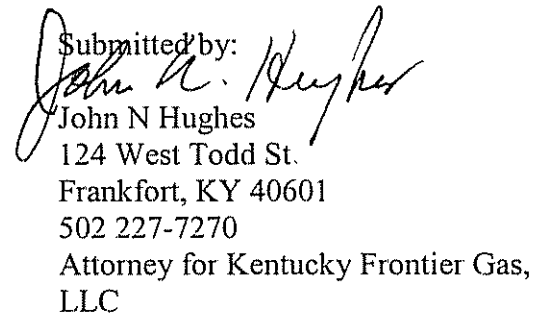 Submitted by:
John N. Hughes
John N Hughes
124 West Todd St.
Frankfort, KY 40601
502 227-7270
Attorney for Kentucky Frontier Gas,
LLC